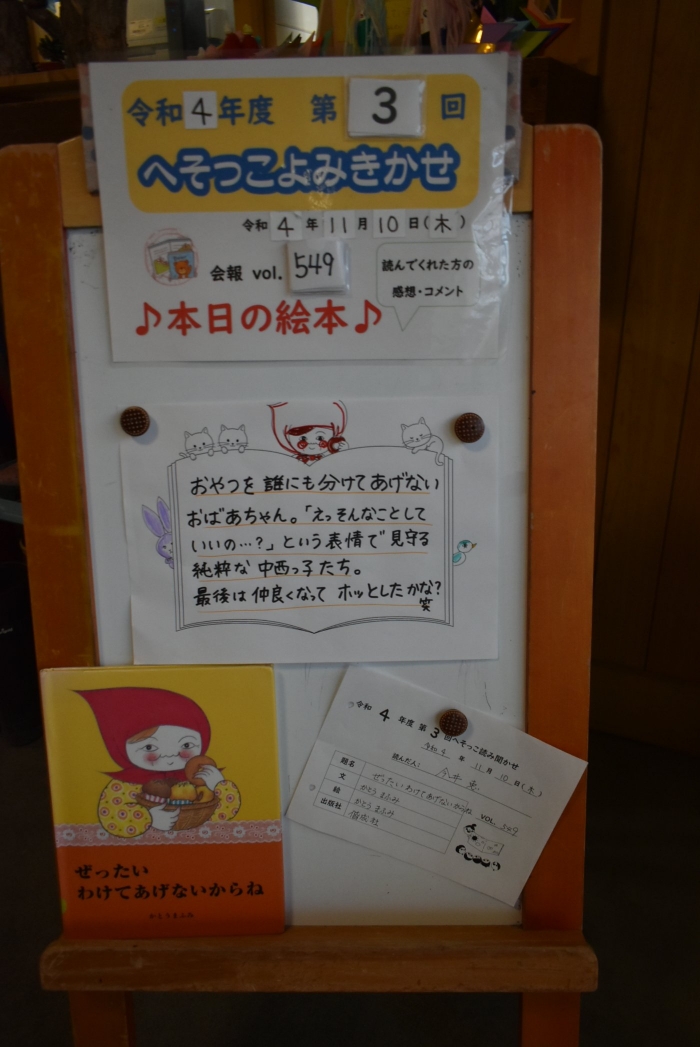 令和4年度 第3回
へそっこよみきかせ
令和4年11月10日(木)
会報 vol. 549
読んでくれた方の
感想・コメント
♪本日の絵本♪
おやつを 誰にも分けてあげない
おばあちゃん。「えっそんなことして
いいの…?」という表情で見守る
純粋な 中西っ子たち。
最後は仲良くなって ホッとしたかな?
笑
ぜったい
わけてあげないからね
かとうまふみ
令和 4 年度 第 3 回へそっこ読み聞かせ
令和4年 11月 10日(木)
読んだ人:
題名 ぜったいわけてあげないからね VOL. 549
文 かとうまふみ
絵 かとうまふみ
出版社 偕成社